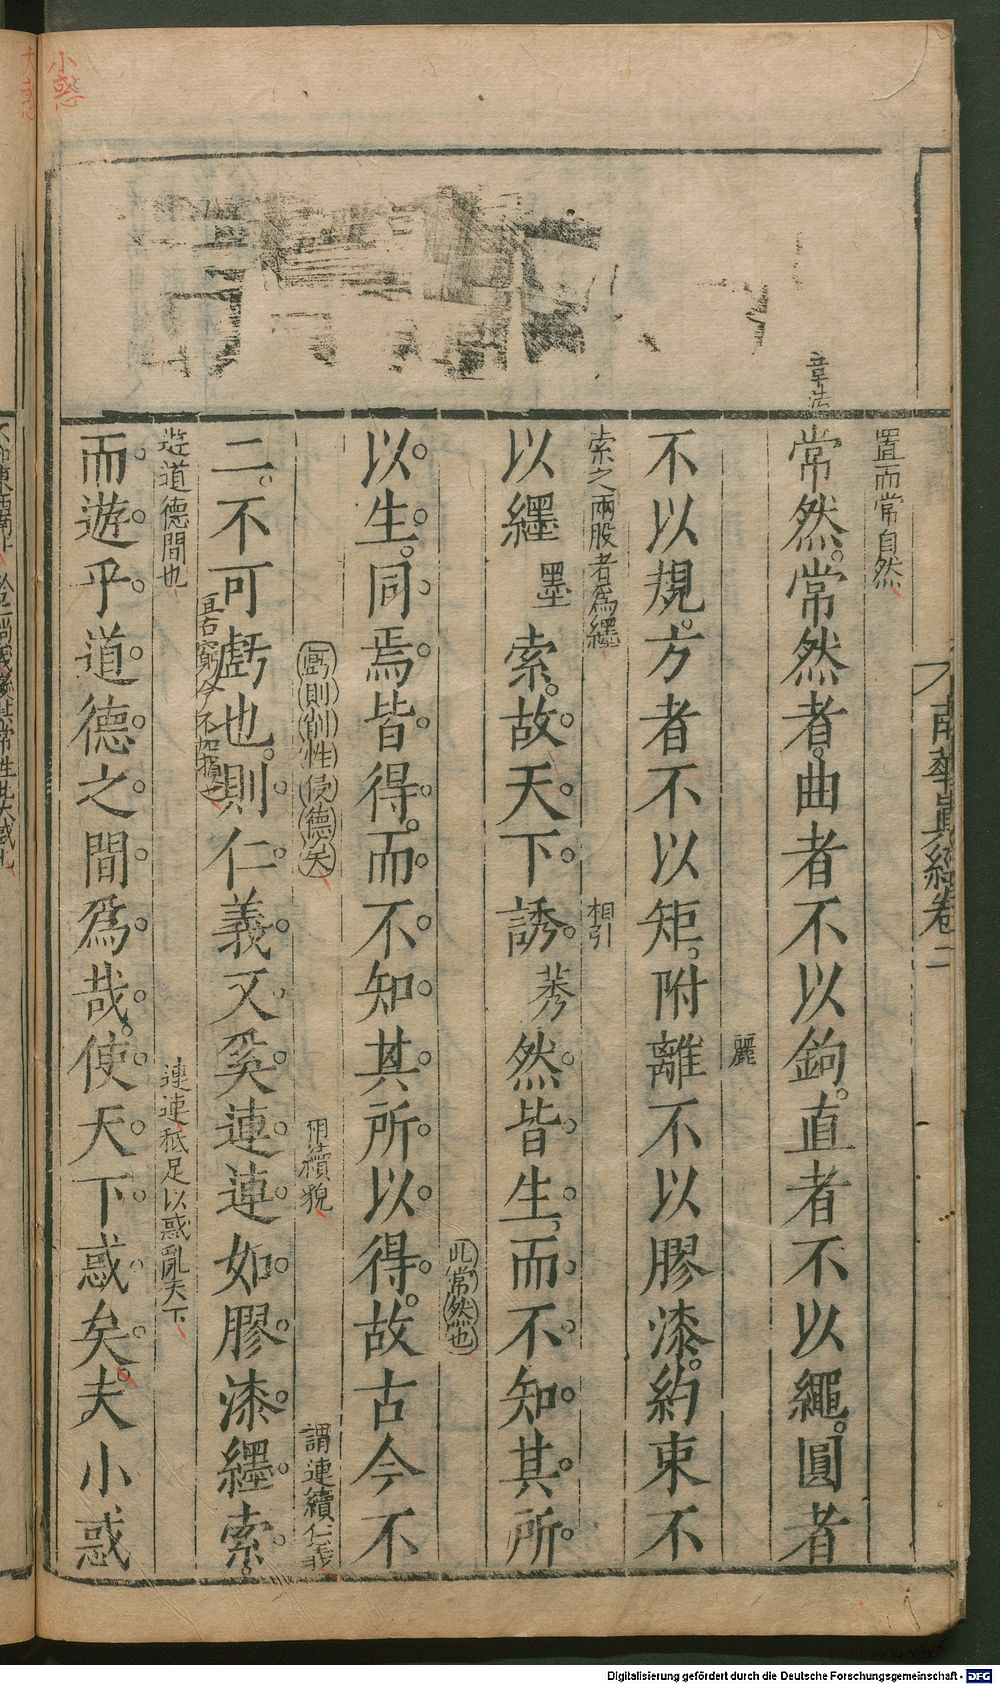 南華眞經卷二
置而常自然
章法
常然。常然者。曲者不以鉤。直者不以繩。圓者
麗
不以規。方者不以矩。附離不以膠漆。約束不
索之兩股者為纆
相引
以纆墨索。故天下誘莠然皆生。而不知其所
此常然也
以生。同焉皆得。而不知其所以得。故古今不
虧則削性侵德矣
相續貌
謂連續仁義
二。不可虧也。則仁義又奚連連如膠漆纆索。
亘古窮今不加損之
遊道德間也
連連秪足以惑亂天下
而遊乎道德之間爲哉。使天下惑矣。夫小惑
小惑
Digitalisierung gefördert durch die Deutsche Forschungsgemeinschaft - DFG